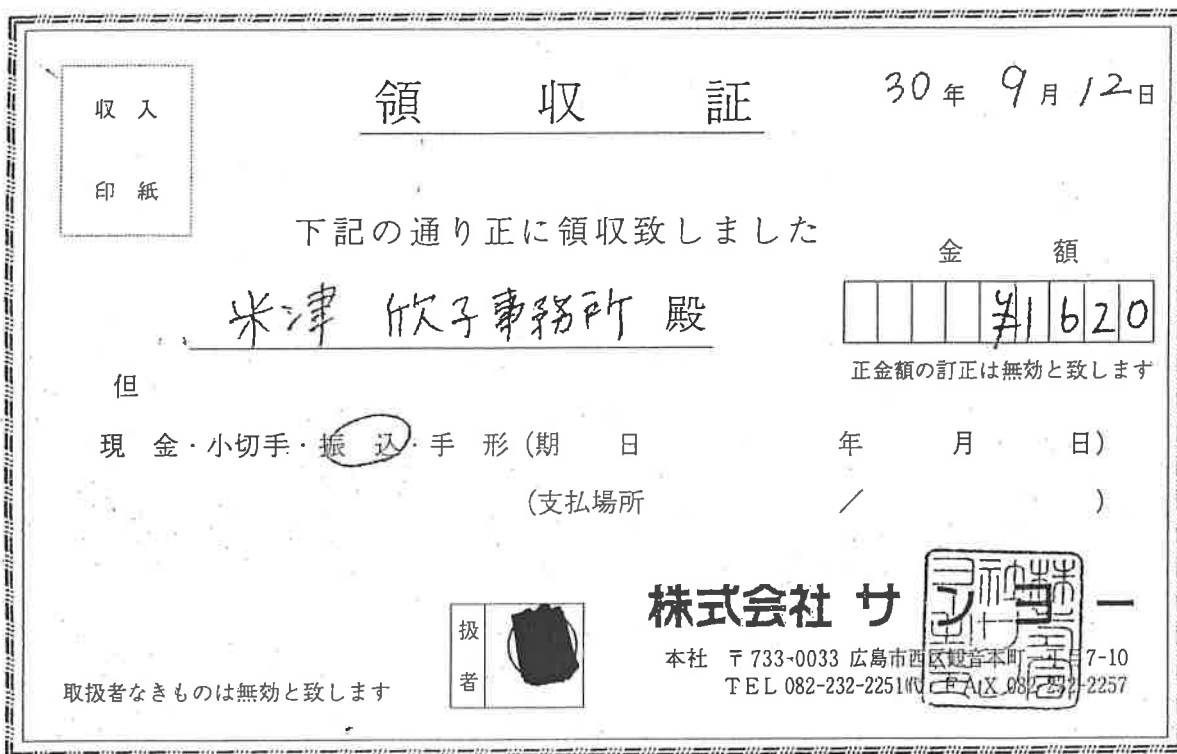 収入
印紙
領収証
30年 9月 12日
下記の通り正に領収致しました
金額
米津 欣子事務所 殿
¥1620
正金額の訂正は無効と致します
但
現金・小切手・振込・手形 (期日 年 月 日)
(支払場所 / )
扱者
株式会社 サンヨー
本社 〒733-0033 広島市西区観音本町一丁目7-10
TEL 082-232-2251㈹ FAX 082-232-2257
取扱者なきものは無効と致します